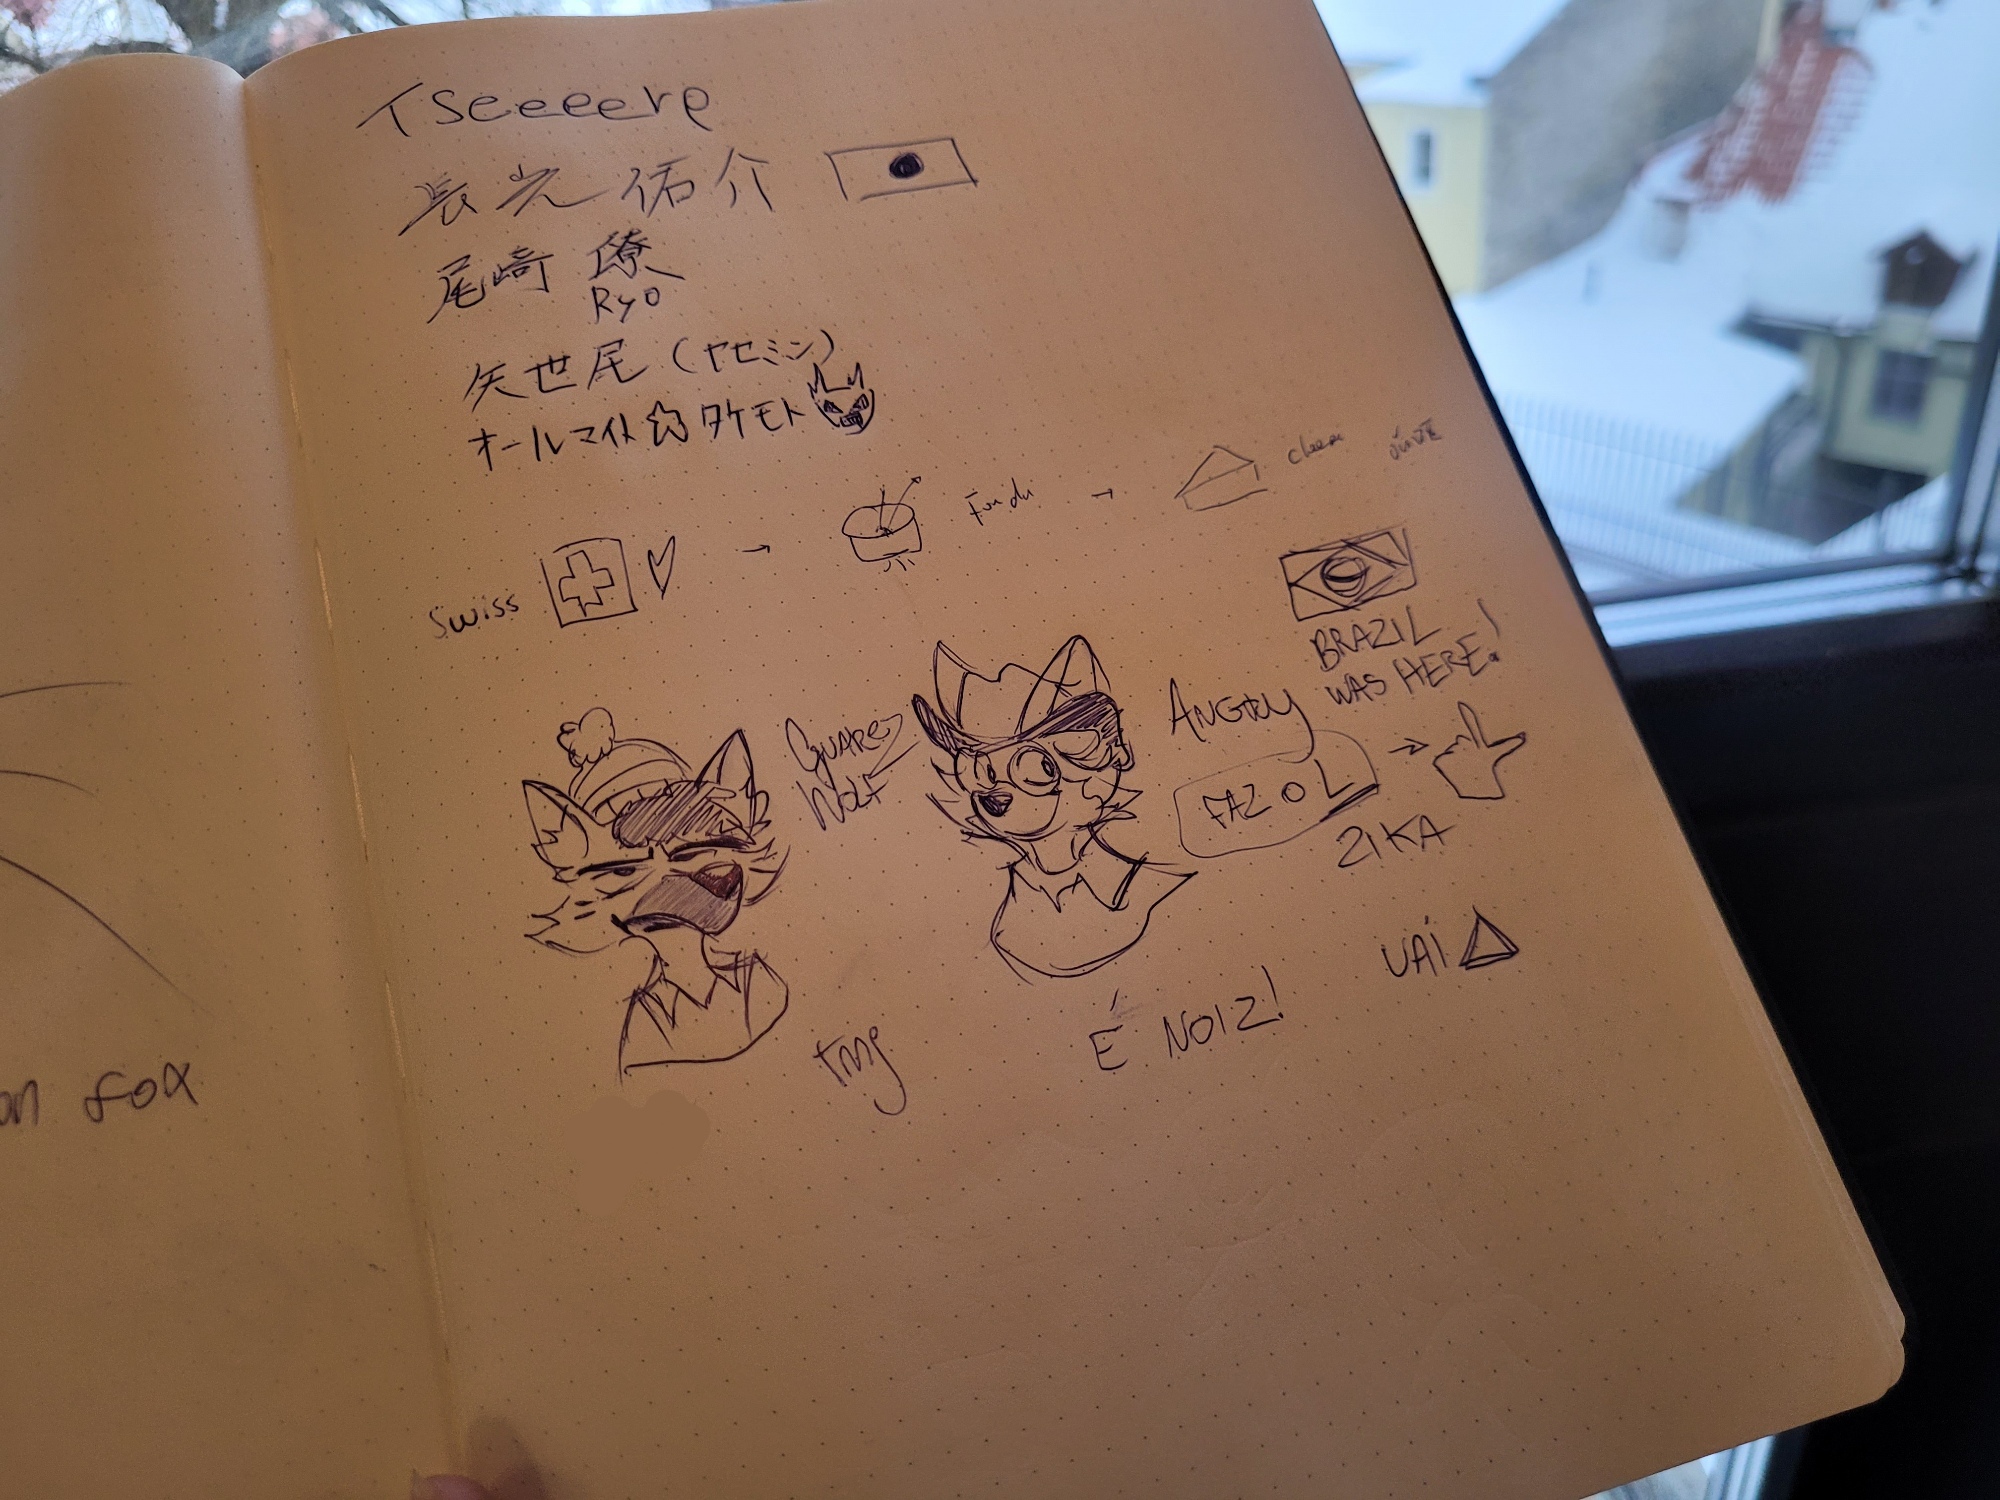 Tseeeerp
長光 佑介
尾崎 僚
Ryo
矢世尾 (ヤセミン)
オールマイト☆タケモト
Swiss → Fondu → cheese
BRAZIL
WAS HERE!
GUAREZ
WOLF
ANGRY
FAZ O L →
ZIKA
VAI
É NOIZ!
tmj
on fox